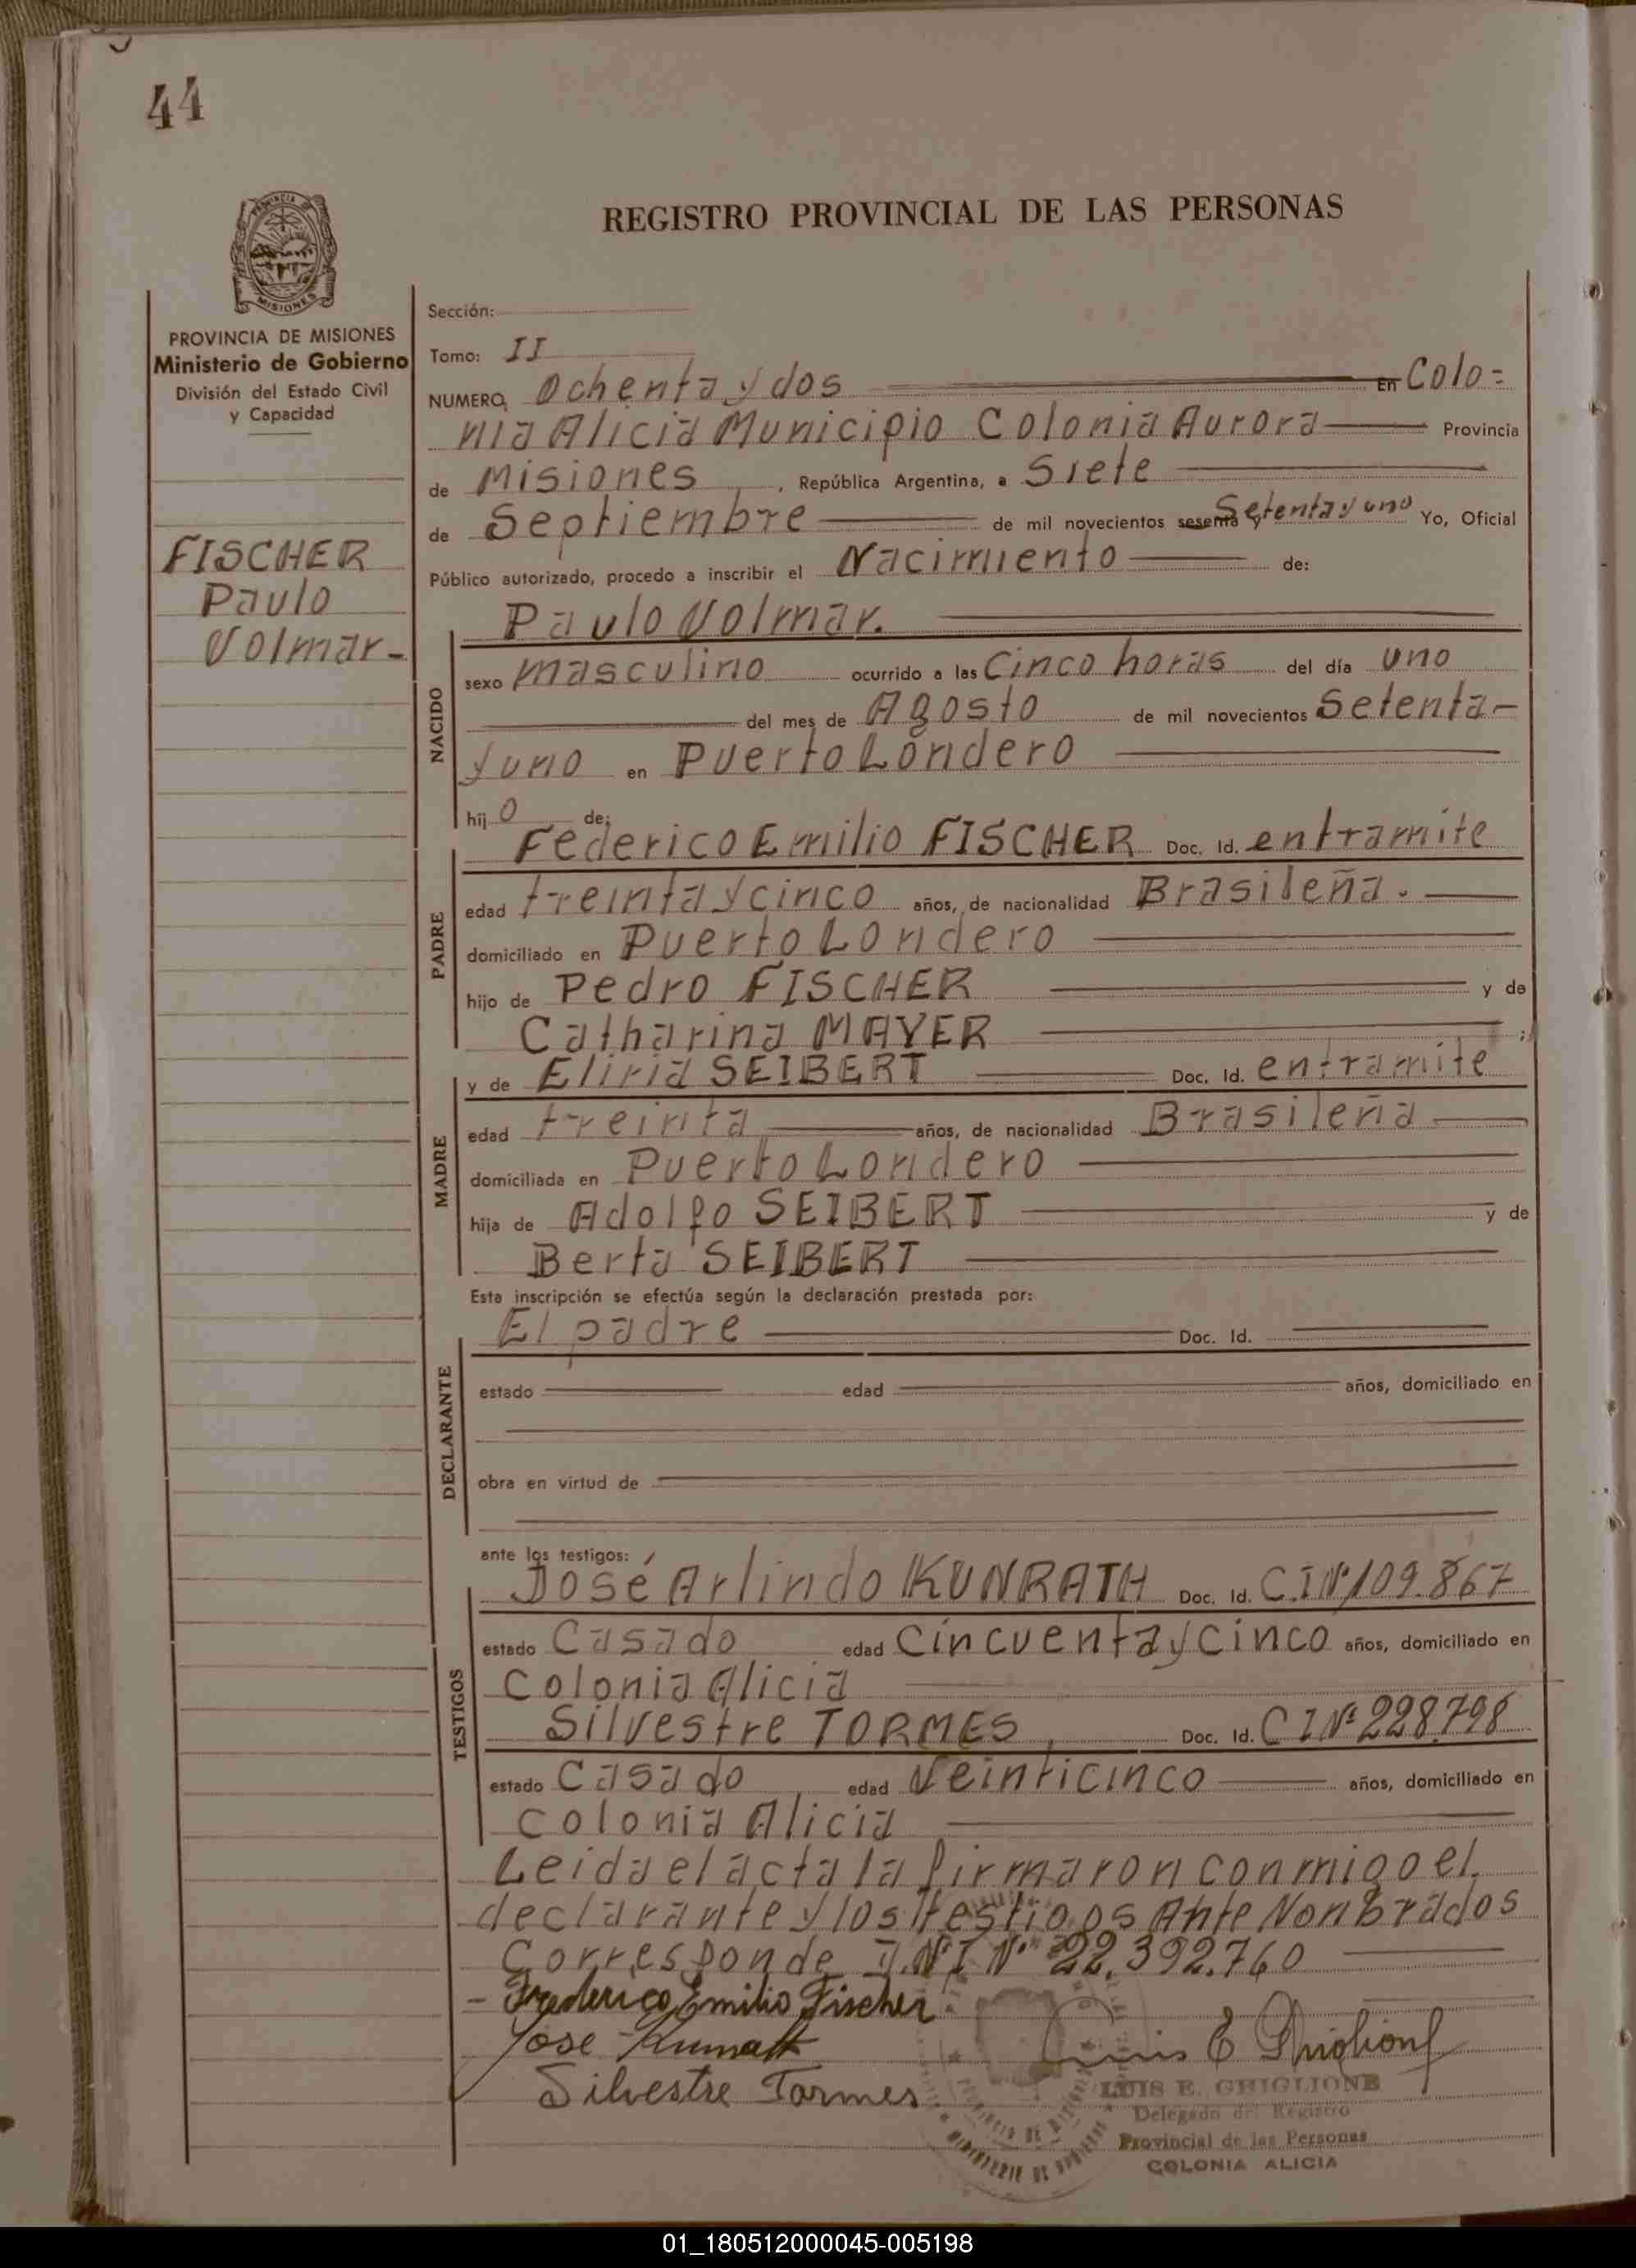 44
REGISTRO PROVINCIAL DE LAS PERSONAS
PROVINCIA DE MISIONES
Ministerio de Gobierno
División del Estado Civil
y Capacidad
FISCHER
Paulo
Volmar-
Sección:
Tomo: II
NUMERO, Ochenta y dos En Colo=
nia Alicia Municipio Colonia Aurora Provincia
de Misiones, República Argentina, a Siete
de Septiembre de mil novecientos sesenta y Setenta y uno Yo, Oficial
Público autorizado, procedo a inscribir el Nacimiento de:
Paulo Volmar.
NACIDO
sexo masculino ocurrido a las Cinco horas del día uno
del mes de Agosto de mil novecientos Setenta-
y uno en Puerto Londero
hij o de:
Federico Emilio FISCHER Doc. Id. en tramite
PADRE
edad treinta y cinco años, de nacionalidad Brasileña.
domiciliado en Puerto Londero
hijo de Pedro FISCHER y de
Catharina MAYER ;
y de Eliria SEIBERT Doc. Id. en tramite
MADRE
edad treinta años, de nacionalidad Brasileña
domiciliada en Puerto Londero
hija de Adolfo SEIBERT y de
Berta SEIBERT
Esta inscripción se efectúa según la declaración prestada por:
El padre Doc. Id.
DECLARANTE
estado edad años, domiciliado en
obra en virtud de
ante los testigos:
José Arlindo KUNRATH Doc. Id. C.I.Nº109.867
TESTIGOS
estado Casado edad Cincuenta y cinco años, domiciliado en
Colonia Alicia
Silvestre TORMES, Doc. Id. C I Nº 228.798
estado Casado edad Veinticinco años, domiciliado en
Colonia Alicia
Leida el acta la firmaron conmigo el
declarante y los testigos Ante Nombrados
Corresponde D.N.I Nº 22.392.760
- Frederico Emilio Fischer.
Jose
Silvestre Tormes
Luis E Ghiglione
LUIS E. GHIGLIONE
Delegado del Registro
Provincial de las Personas
COLONIA ALICIA
01_180512000045-005198